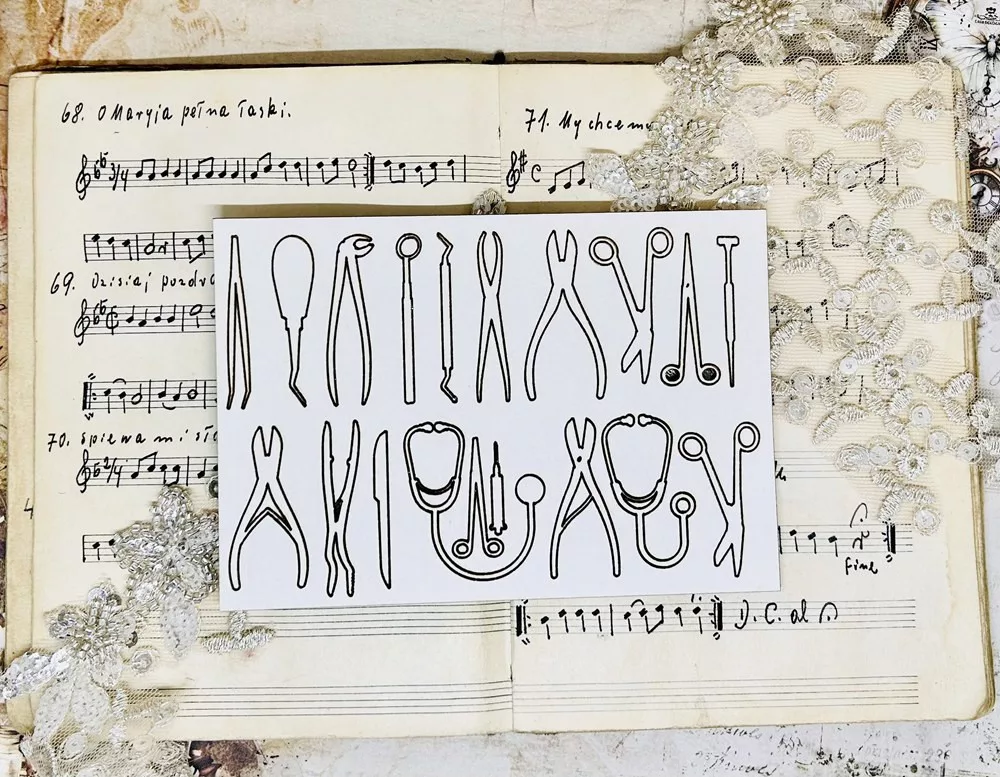 68. O Maryja pełna łaski.
3/4
69. Dzisiaj pozdr
70. Śpiewam i sło
2/4
4
71. My chcemy
C
fine
D. C. al